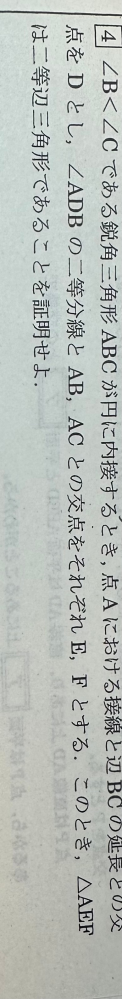 4 ∠B<∠C である鋭角三角形 ABC が円に内接するとき，点 A における接線と辺 BC の延長との交
点を D とし，∠ADB の二等分線と AB，AC との交点をそれぞれ E，F とする．このとき，△AEF
は二等辺三角形であることを証明せよ．